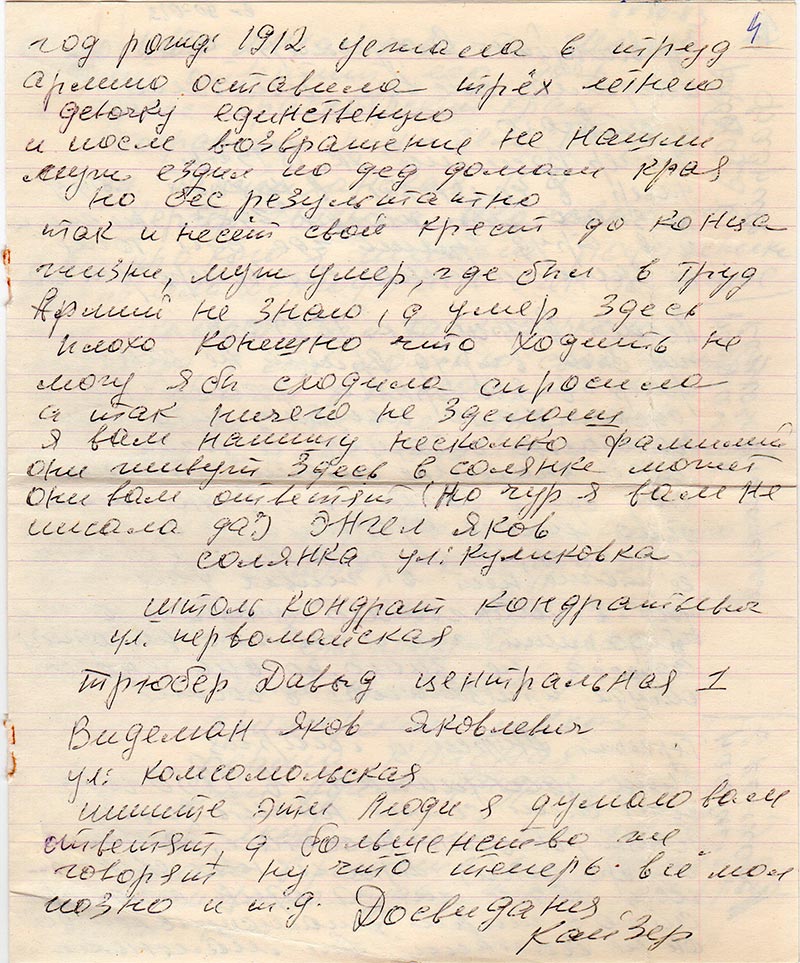 4
год рожд: 1912 уежала в труд
армию оставила трёх летнею
девочку единственую
и после возвращение не нашли
муж ездил по дед домам края
но бес результатно
так и несёт свой крест до конца
жизни, муж умер, где был в труд
Армий не знаю, а умер здесь
плохо конешно что ходить не
могу я бы сходила спросила
а так ничего не зделаеш
я вам напишу несколько фамилий
они живут здесь в солянке может
они вам ответят (но чур я вам не
писала да?) Энгел Яков
солянка ул: Куликовка
штоль Кондрат Кондратьевич
ул. первомайская
трюбер Давыд центральная 1
Видеман Яков Яковлевич
ул: комсомольская
пишите эти люди я думаю вам
ответят, а большенство же
говорят ну что теперь. всё мол
позно и т.д. Досвидания
Кайзер